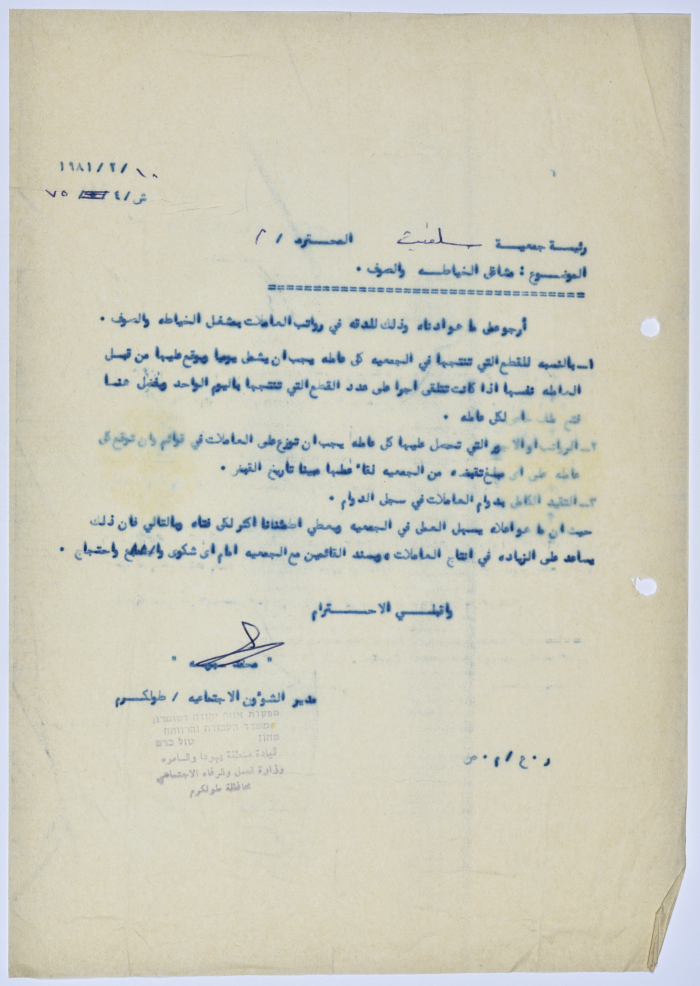 ١٠/٢/١٩٨١
ش/٤ ٧٥
رئيسة جمعية سلفيت المحترمه / م
الموضوع : مشاغل الخياطه والصوف .
أرجو على ما هو ادناه وذلك للدقه في رواتب العاملات بمشغل الخياطه والصوف .
١ـ بالنسبه للقطع التي تنتجها في الجمعيه كل عامله يجب ان يسجل يوميا ويوقع عليها من قبل
العامله نفسها اذا كانت تتلقى اجرا على عدد القطع التي تنتجها باليوم الواحد ويفضل عندنا
فتح ملف خاص لكل عامله .
٢ـ الراتب او الاجور التي تحصل عليها كل عامله يجب ان توزع على العاملات في قوائم وان توقع كل
عامله على اى مبلغ تقبضه من الجمعيه لقاء عملها مبينا تأريخ القبض .
٣ـ التقيد الكامل بدوام العاملات في سجل الدوام .
حيث ان ما هو اعلاه يسهل العمل في الجمعيه ويعطي اطمئنانا اكثر لكل فتاه وبالتالي فان ذلك
يساعد على الزياده في انتاج العاملات ويسند القائمين مع الجمعيه امام اى شكوى او واحتجاج .
واقبلــي الاحتــرام
" محمد "
مدير الشؤون الاجتماعيه / طولكــرم
מפקדת אזור יהודה ושומרון
משרד העבודה והרווחה
מחוז טול כרם
قيادة منطقة يهودا والسامره
وزارة العمل والرفاه الاجتماعي
محافظة طولكرم
ر.ع/م.ص